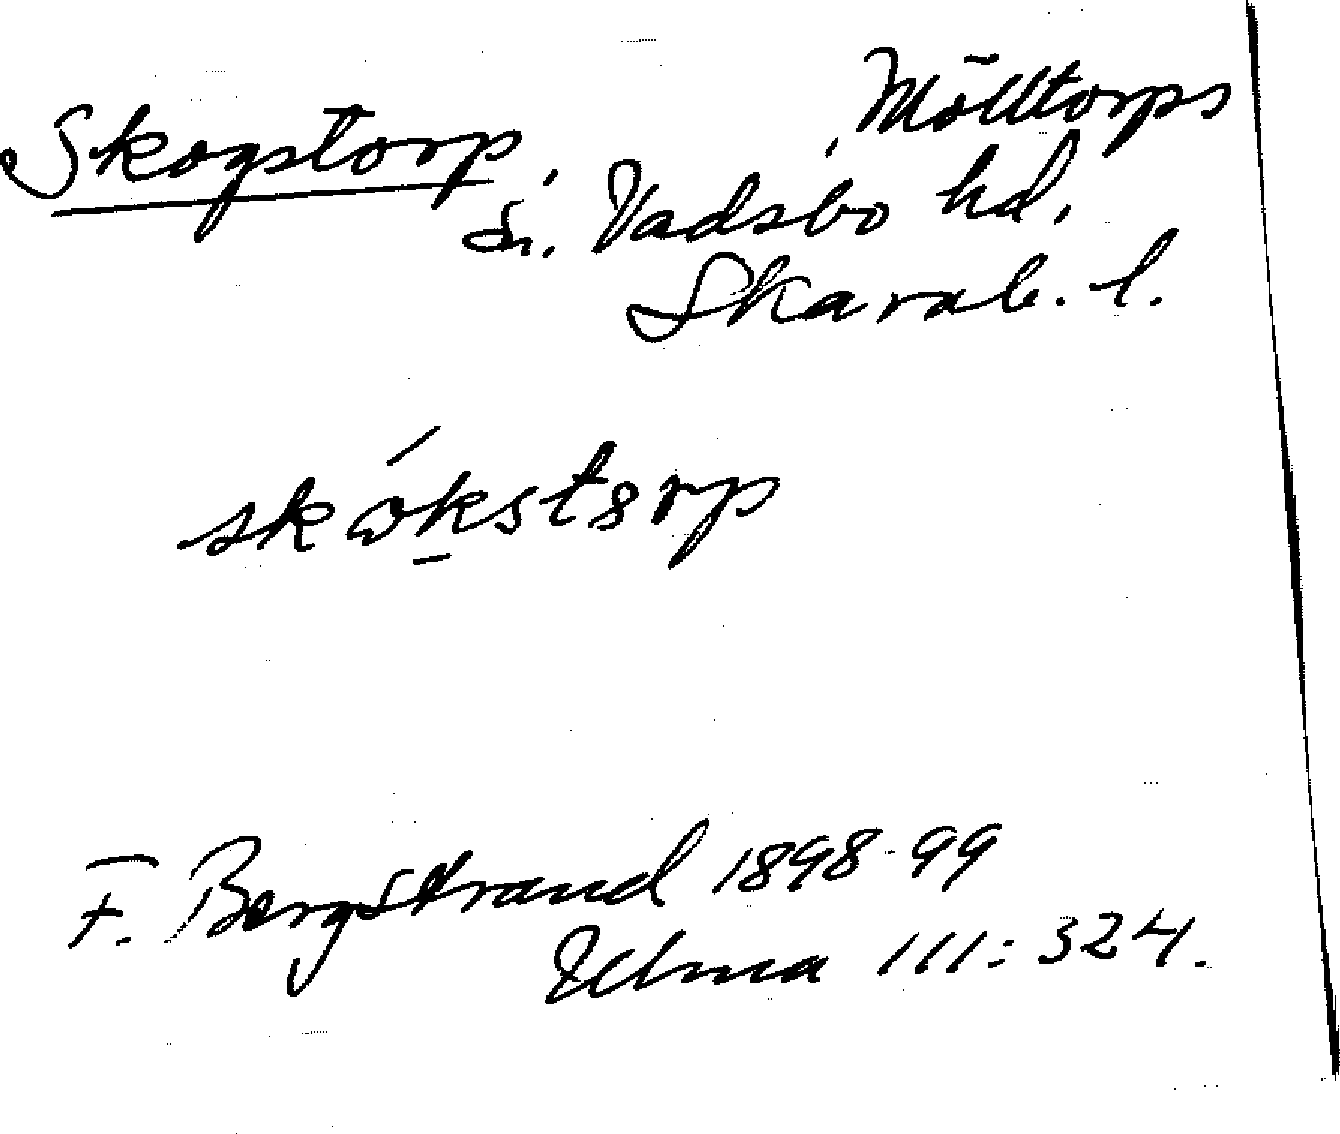 Skogstorp, Mölltorps
sn. Vadsbo hd,
Skarab. l.
skωkstorp
F. Bergstrand 1898-99
Ulma 111:324.